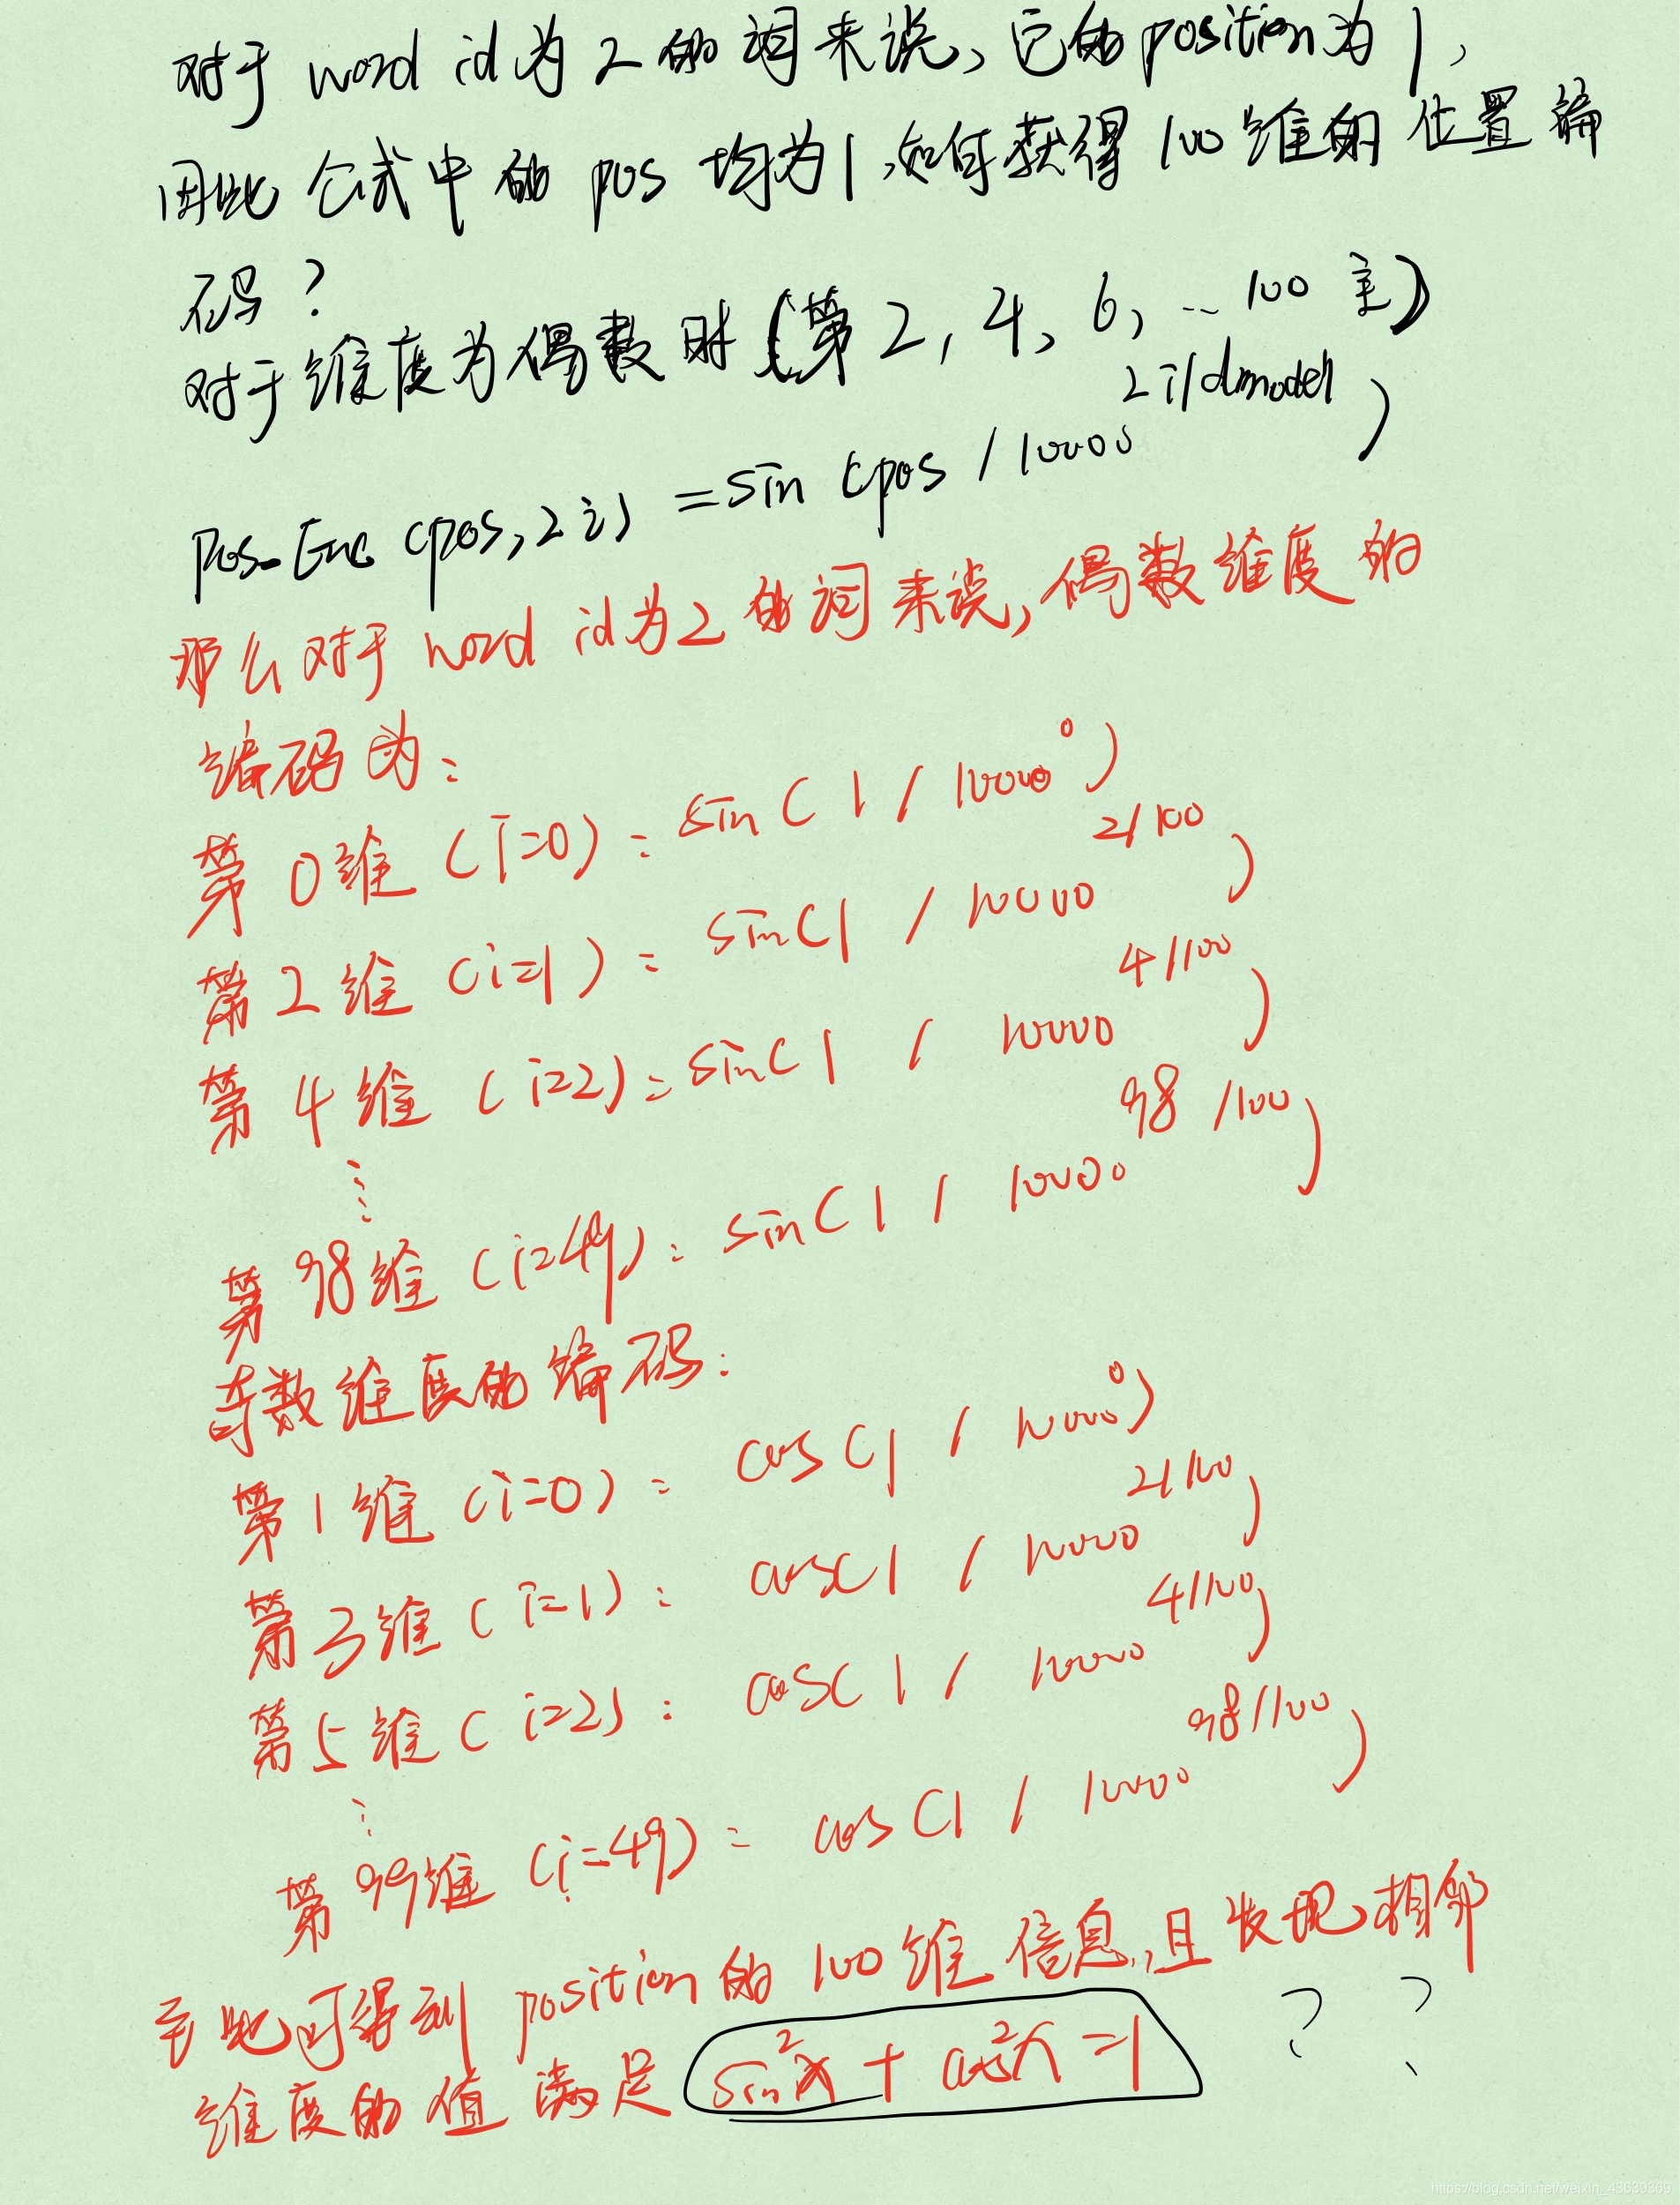 对于 word id 为 2 的词来说, 它的position为 1,
因此 公式中的 pos 均为1,如何获得 100 维的 位置编
码?
对于维度为偶数时 (第 2, 4, 6, ... 100 维)
Pos_Enc (pos, 2i) = sin (pos / 10000^{2i/dmodel})
那么对于 word id为2的词来说, 偶数维度的
编码为:
第 0 维 (i=0): sin(1 / 10000^0)
第 2 维 (i=1): sin(1 / 10000^{2/100})
第 4 维 (i=2): sin(1 / 10000^{4/100})
⋮
第 98 维 (i=49): sin(1 / 10000^{98/100})
奇数维度的编码:
第 1 维 (i=0): cos(1 / 10000^0)
第 3 维 (i=1): cos(1 / 10000^{2/100})
第 5 维 (i=2): cos(1 / 10000^{4/100})
⋮
第 99维 (i=49): cos(1 / 10000^{98/100})
至此可得到 position的 100 维 信息,且发现相邻
维度的值 满足 sin²x + cos²x = 1 ? ?
https://blog.csdn.net/weixin_43639369